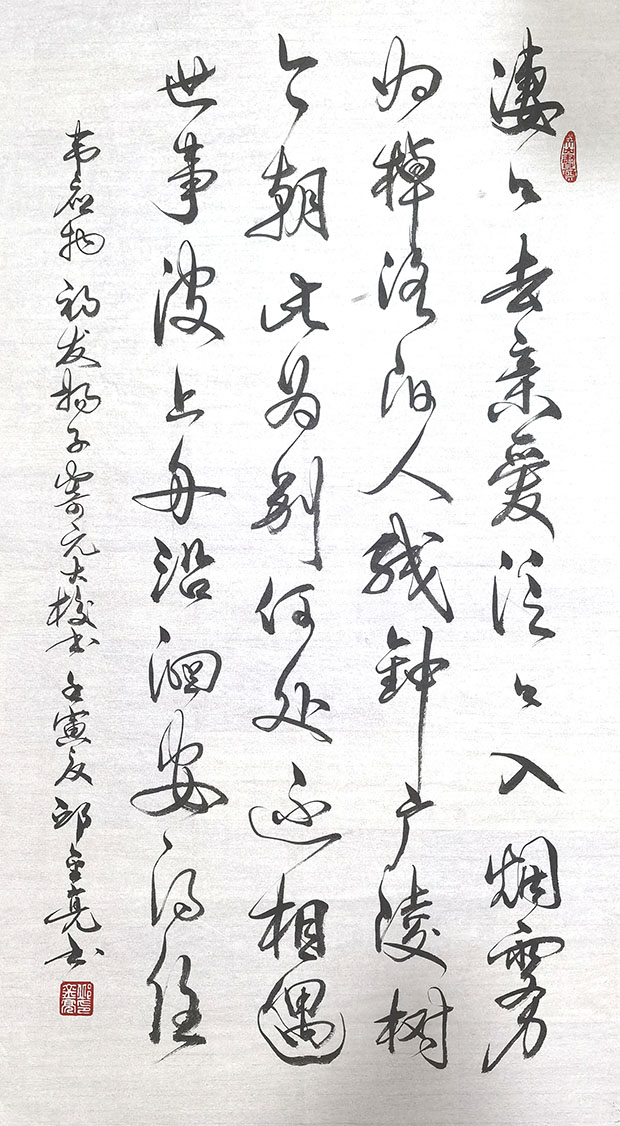 凄々去亲爱泛々入烟雾
归棹洛阳人残钟广陵树
今朝此为别何处还相遇
世事波上舟沿洄安得住
韦应物 初发扬子寄元大校书 壬寅夏 邱金亮书